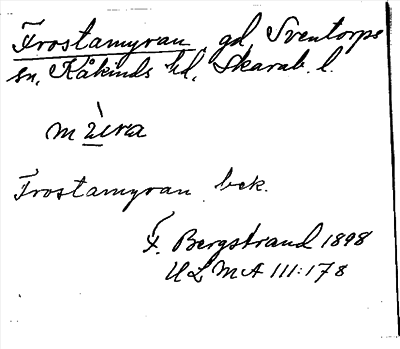 Frostamyran, gd, Sventorps
sn, Kåkinds hd, Skarab. l.
Frostamyran bek.
F. Bergstrand 1898
ULMA 111:178